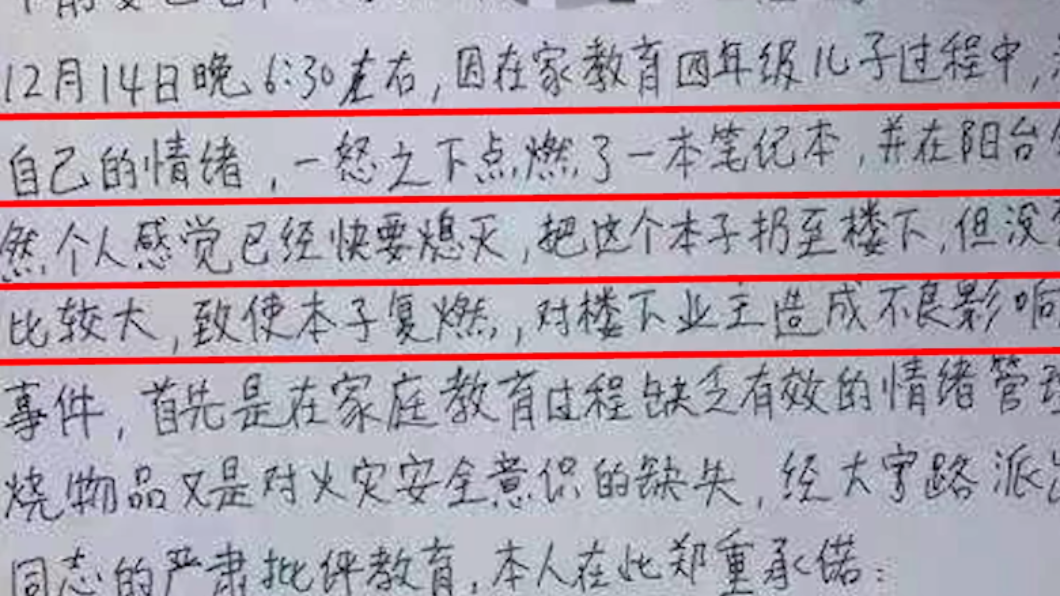 12月14日晚6:30左右,因在家教育四年级儿子过程中,
自己的情绪,一怒之下点燃了一本笔记本,并在阳台
然个人感觉已经快要熄灭,把这个本子扔至楼下,但没
比较大,致使本子复燃,对楼下业主造成不良影响
事件,首先是在家庭教育过程缺乏有效的情绪管理
烧物品又是对火灾安全意识的缺失,经大宁路派
同志的严肃批评教育,本人在此郑重承偌: